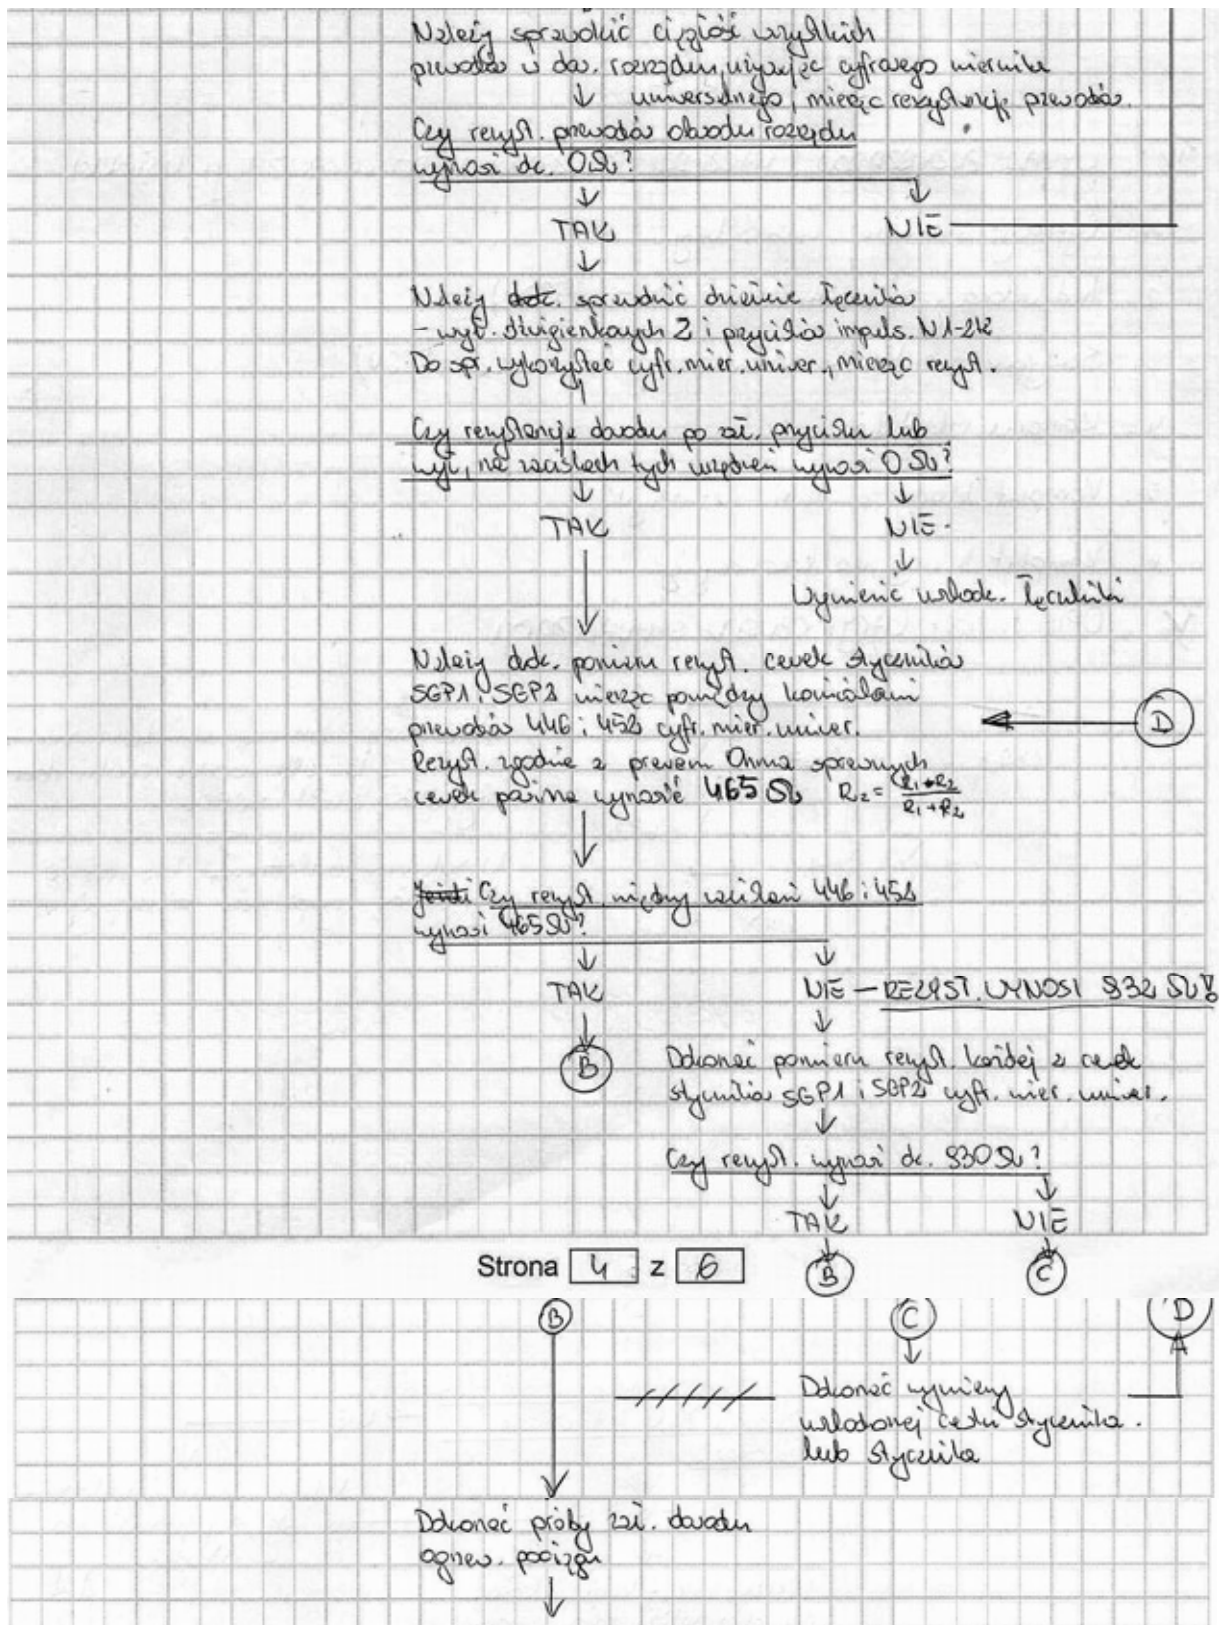 Należy sprawdzić ciągłość wszystkich
przewodów w obw. rozrządu, używając cyfrowego miernika
↓ uniwersalnego, mierząc rezystancję przewodów.
Czy rezyst. przewodów obwodu rozrządu
wynosi ok. 0Ω?
↓ ↓
TAK NIE
↓
Należy dok. sprawdzić działanie łączników
- wył. dźwigienkowych Z i przycisków impuls. N1-2K
Do spr. wykorzystać cyfr. mier. uniwer., mierząc rezyst.
Czy rezystancja obwodu po zał. przycisku lub
wył, na zaciskach tych urządzeń wynosi 0Ω?
↓ ↓
TAK NIE.
↓ ↓
Wymienić uszkodz. łączniki
Należy dok. pomiaru rezyst. cewek styczników
SGP1 i SGP2 mierząc pomiędzy końcówkami
przewodów 446 i 458 cyfr. mier. uniwer.
D
Rezyst. zgodnie z prawem Ohma sprawnych
cewek powinna wynosić 465Ω Rz = R1*R2 / R1+R2
↓
Jeżeli Czy rezyst. między zaciskami 446 i 458
wynosi 465Ω?
↓ ↓
TAK NIE – REZYST. WYNOSI 932 Ω!
↓ ↓
B
Dokonać pomiaru rezyst. każdej z cewek
styczników SGP1 i SGP2 cyfr. mier. uniwer.
↓
Czy rezyst. wynosi ok. 930Ω?
↓ ↓
TAK NIE
↓ ↓
B C
Strona 4 z 6
B C D
↓
Dokonać wymiany
uszkodzonej cewki stycznika
lub stycznika
↓
Dokonać próby zał. obwodu
ogrzew. pociągu
↓